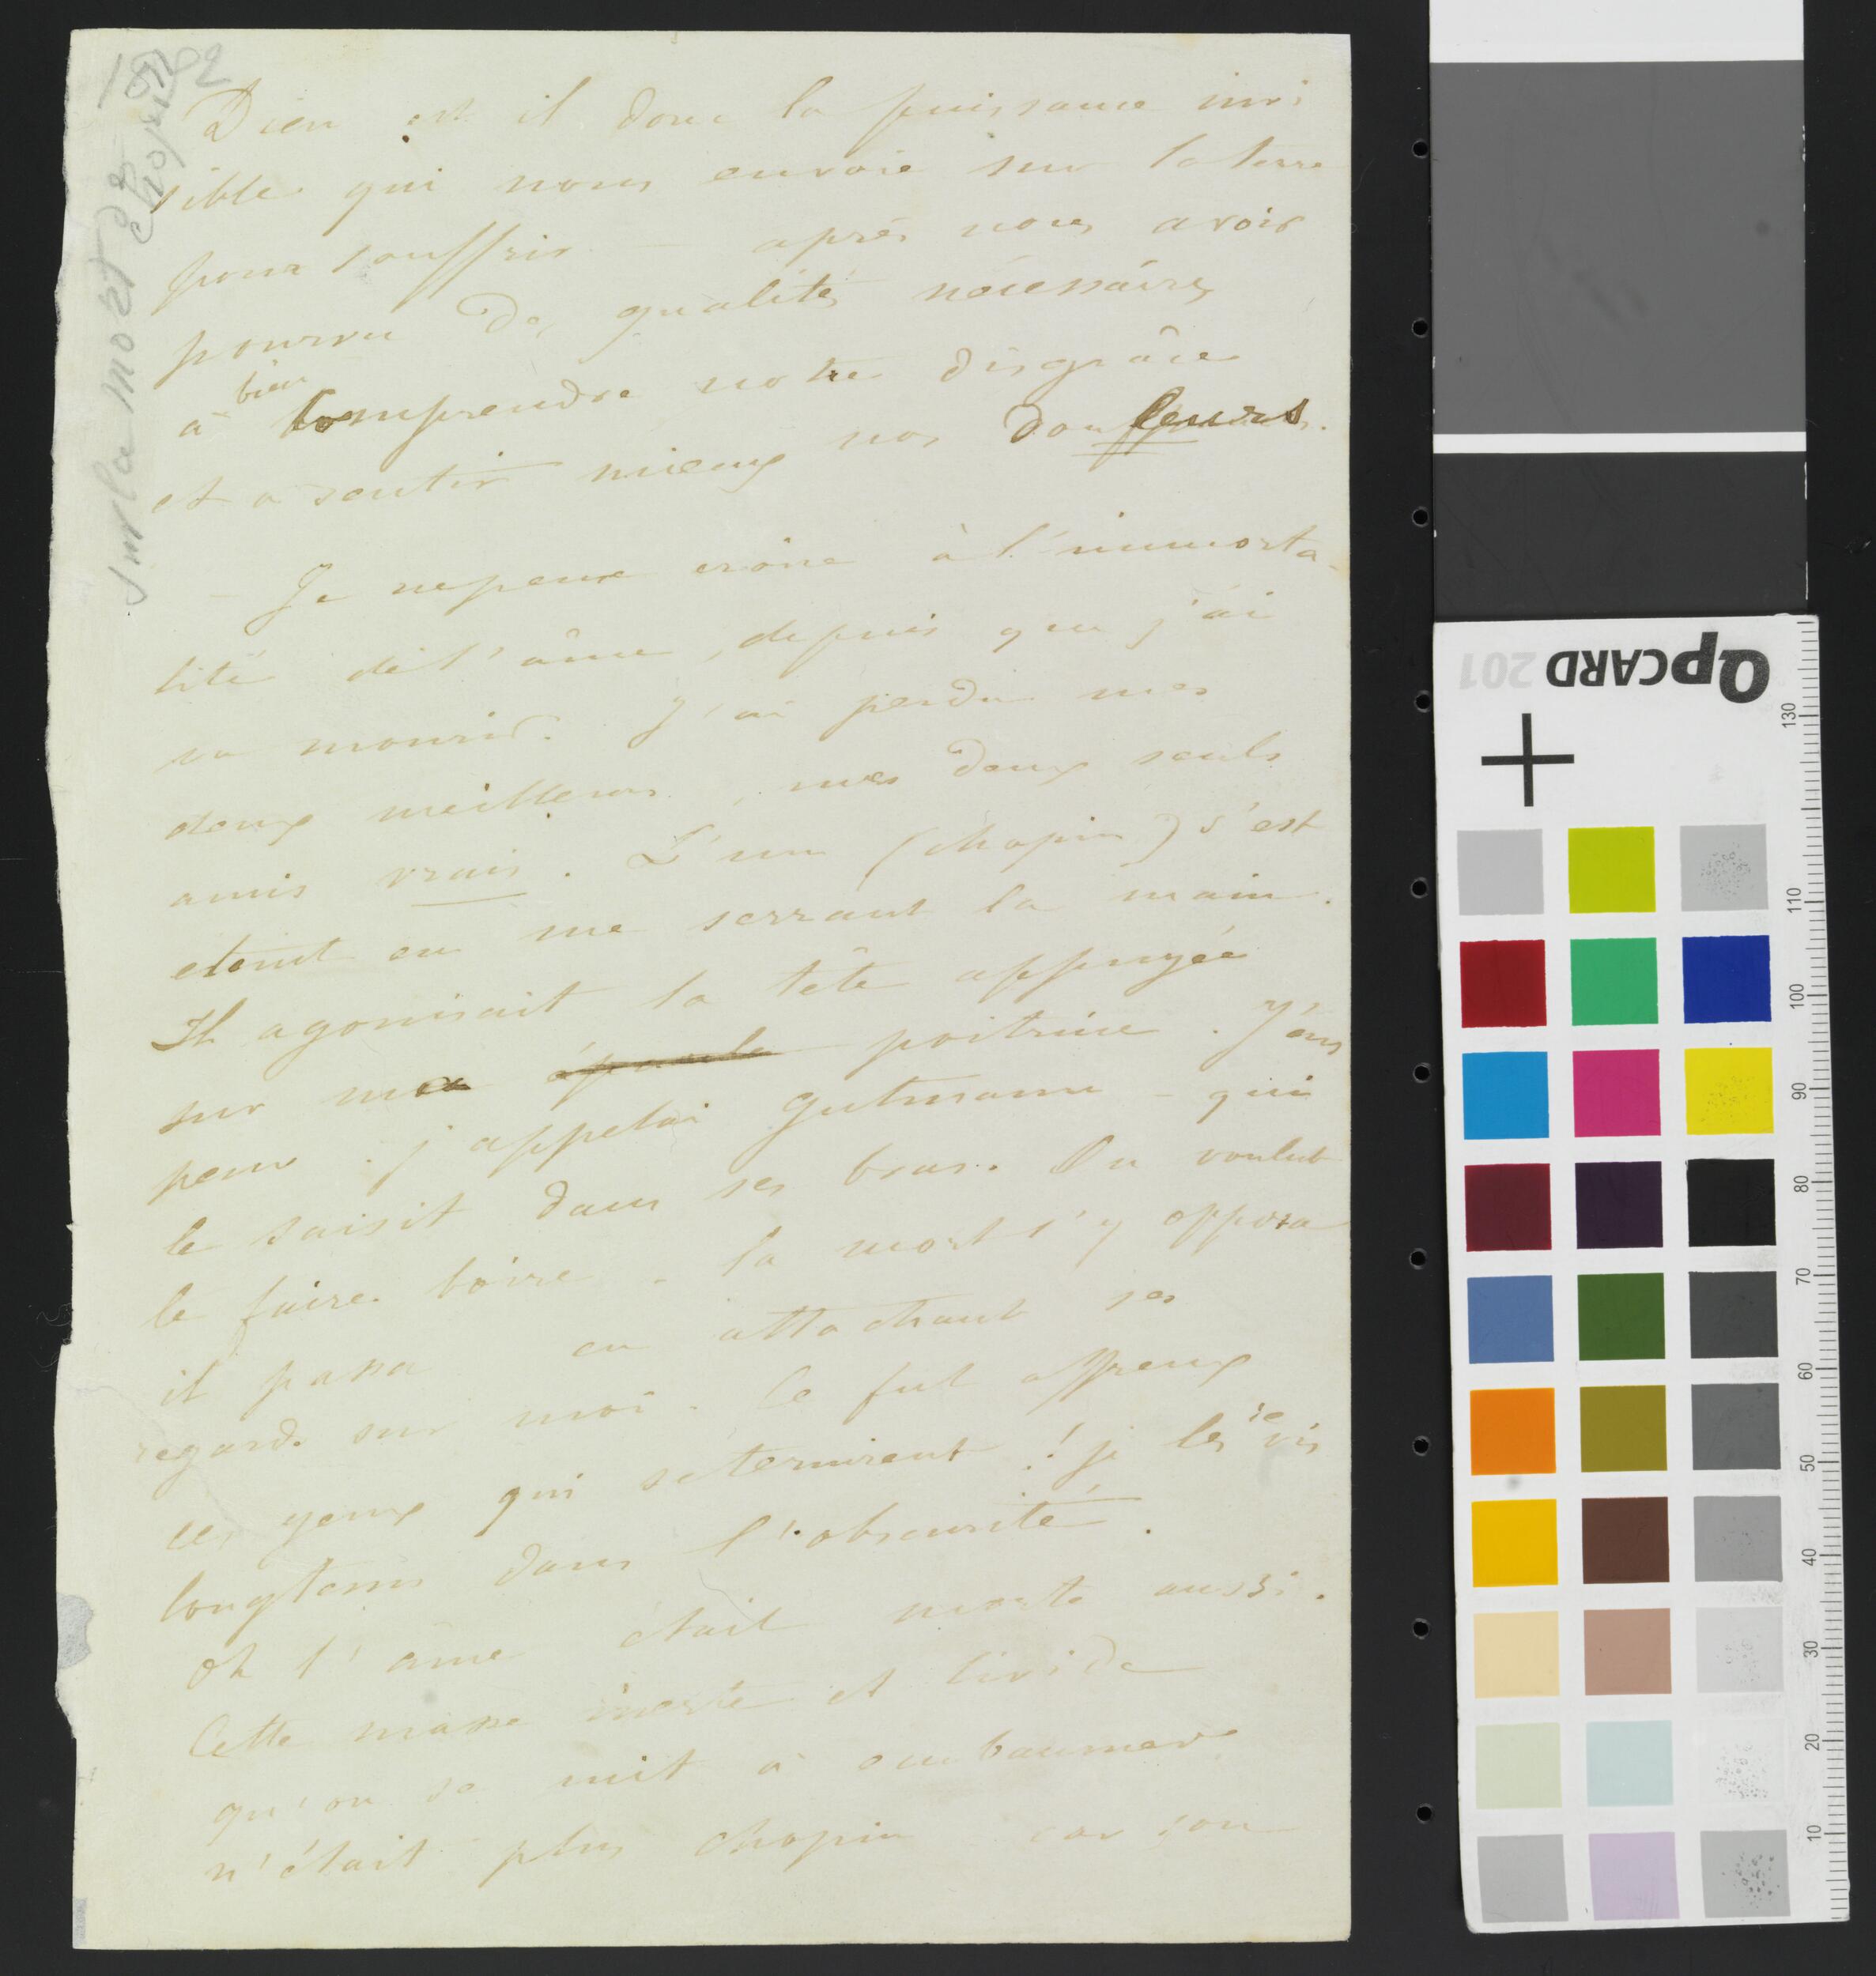 Sur la mort de Chopin
Dieu est il donc la puissance invi
sible qui nous envoie sur la terre
pour souffrir – après nous avoir
pourvu des qualités nécessaires
bien
à comprendre notre disgrâce
et à sentir mieux nos douleurs.
– Je ne peux croire à l'immorta-
lité de l'âme, depuis que j'ai
vu mourir. J'ai perdu mes
deux meilleurs, mes deux seuls
amis vrais. L'un (Chopin) s'est
eteint en me serrant la main.
Il agonisait la tête appuyée
sur ma épaule poitrine. J'eus
peur. j'appelai Gutmann – qui
le saisit dans ses bras. On voulut
le faire boire – la mort s'y opposa
il passa en attachant ses
regards sur moi. Ce fut affreux
ces yeux qui se ternirent ! je les re vis
longtems dans l'obscurité.
oh l'âme était morte aussi.
Cette masse inerte et livide
qu'on se mit à embaumer
n'était plus Chopin car son
QPCARD 201
130
110
100
90
80
70
60
50
40
30
20
10